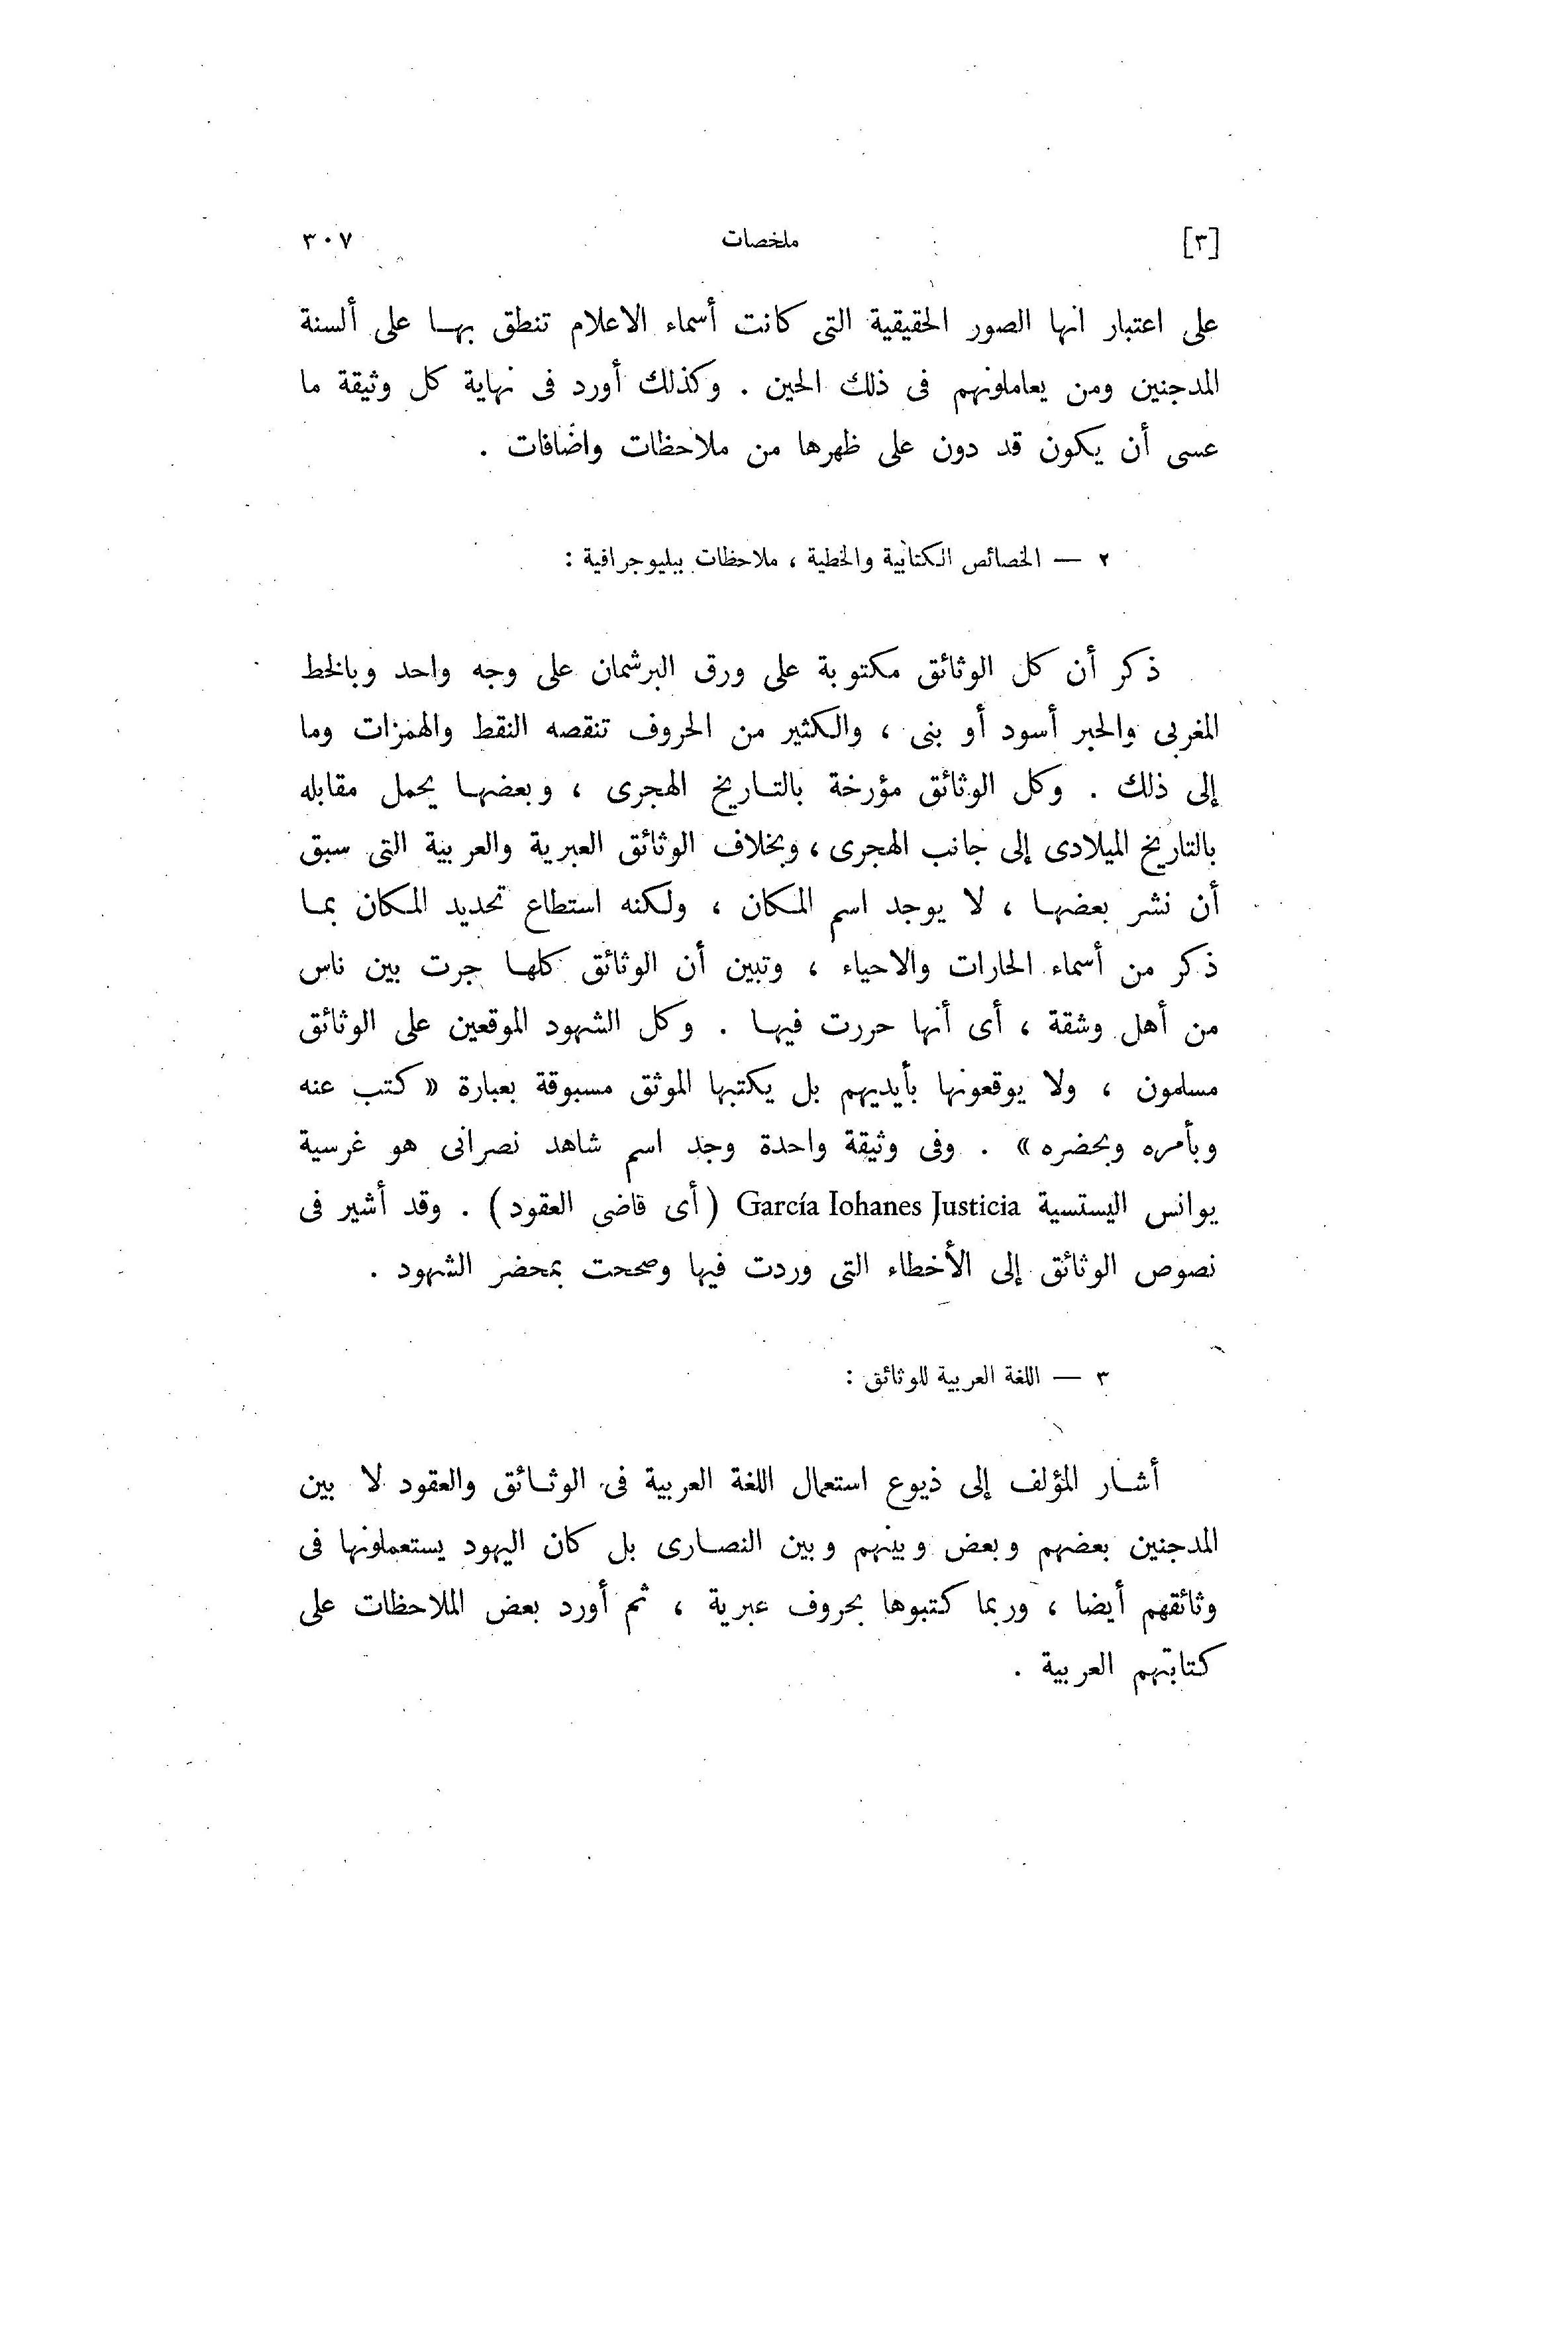 [٣] ملخصات ٣٠٧
على اعتبار انها الصور الحقيقية التى كانت أسماء الاعلام تنطق بها على ألسنة
المدجنين ومن يعاملونهم فى ذلك الحين . وكذلك أورد فى نهاية كل وثيقة ما
عسى أن يكون قد دون على ظهرها من ملاحظات واضافات .
٢ — الخصائص الكتابية والخطية ، ملاحظات ببليوجرافية :
ذكر أن كل الوثائق مكتوبة على ورق البرشمان على وجه واحد وبالخط
المغربى والحبر أسود أو بنى ، والكثير من الحروف تنقصه النقط والهمزات وما
إلى ذلك . وكل الوثائق مؤرخة بالتاريخ الهجرى ، وبعضها يحمل مقابله
بالتاريخ الميلادى إلى جانب الهجرى ، وبخلاف الوثائق العبرية والعربية التى سبق
أن نشر بعضها ، لا يوجد اسم المكان ، ولكنه استطاع تحديد المكان بما
ذكر من أسماء الحارات والاحياء ، وتبين أن الوثائق كلها جرت بين ناس
من أهل وشقة ، أى أنها حررت فيها . وكل الشهود الموقعين على الوثائق
مسلمون ، ولا يوقعونها بأيديهم بل يكتبها الموثق مسبوقة بعبارة « كتب عنه
وبأمره وبحضره » . وفى وثيقة واحدة وجد اسم شاهد نصرانى هو غرسية
يوانس اليستسية García Iohanes Justicia (أى قاضى العقود) . وقد أشير فى
نصوص الوثائق إلى الأخطاء التى وردت فيها وصححت بمحضر الشهود .
٣ — اللغة العربية للوثائق :
أشار المؤلف إلى ذيوع استعمال اللغة العربية فى الوثائق والعقود لا بين
المدجنين بعضهم وبعض وبينهم وبين النصارى بل كان اليهود يستعملونها فى
وثائقهم أيضا ، وربما كتبوها بحروف عبرية ، ثم أورد بعض الملاحظات على
كتابتهم العربية .